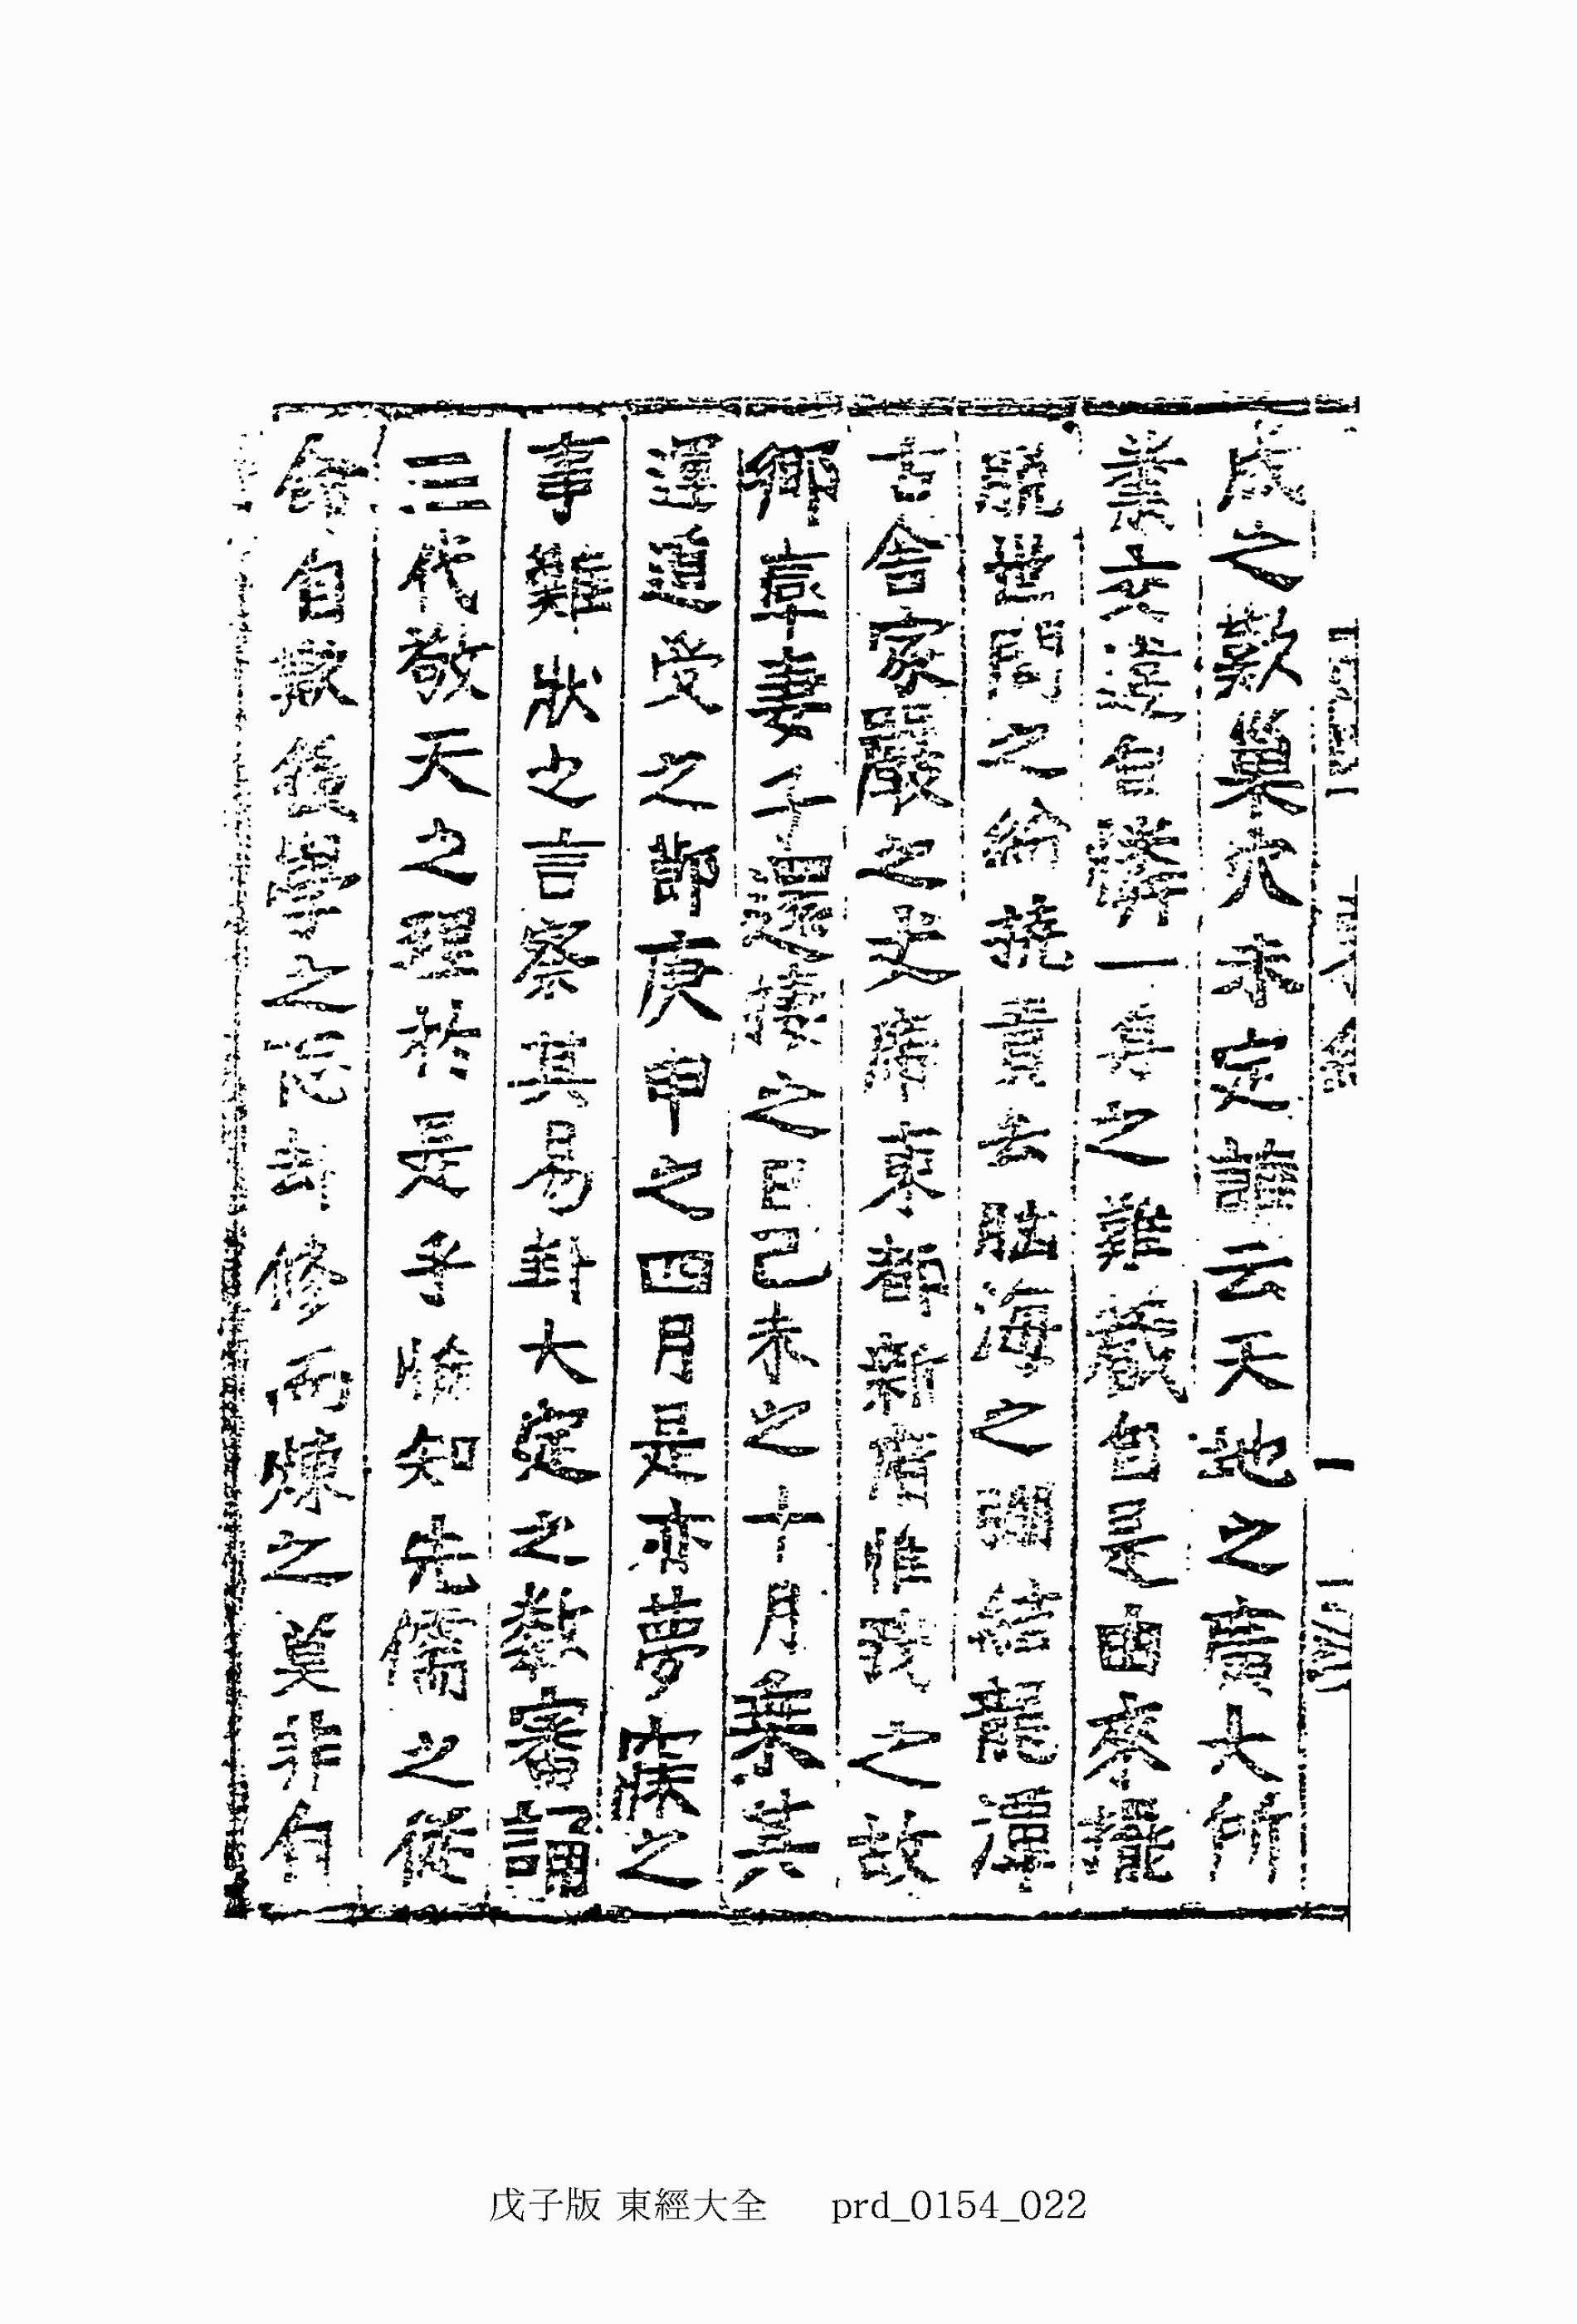 成之歎巢穴未定誰云天地之廣大所
業交違自憐一身之難藏自是由來擺
脫世間之紛撓責去胸海之弸結龍潭
古舍家嚴之丈席東都新府惟我之故
鄕率妻子還捿之日己未之十月乘其
運道受之節庚申之四月是亦夢寐之
事難狀之言察其易卦大定之數審誦
三代敬天之理於是乎惟知先儒之從
命自歎後學之忘却修而煉之莫非自
戊子版 東經大全 prd_0154_022